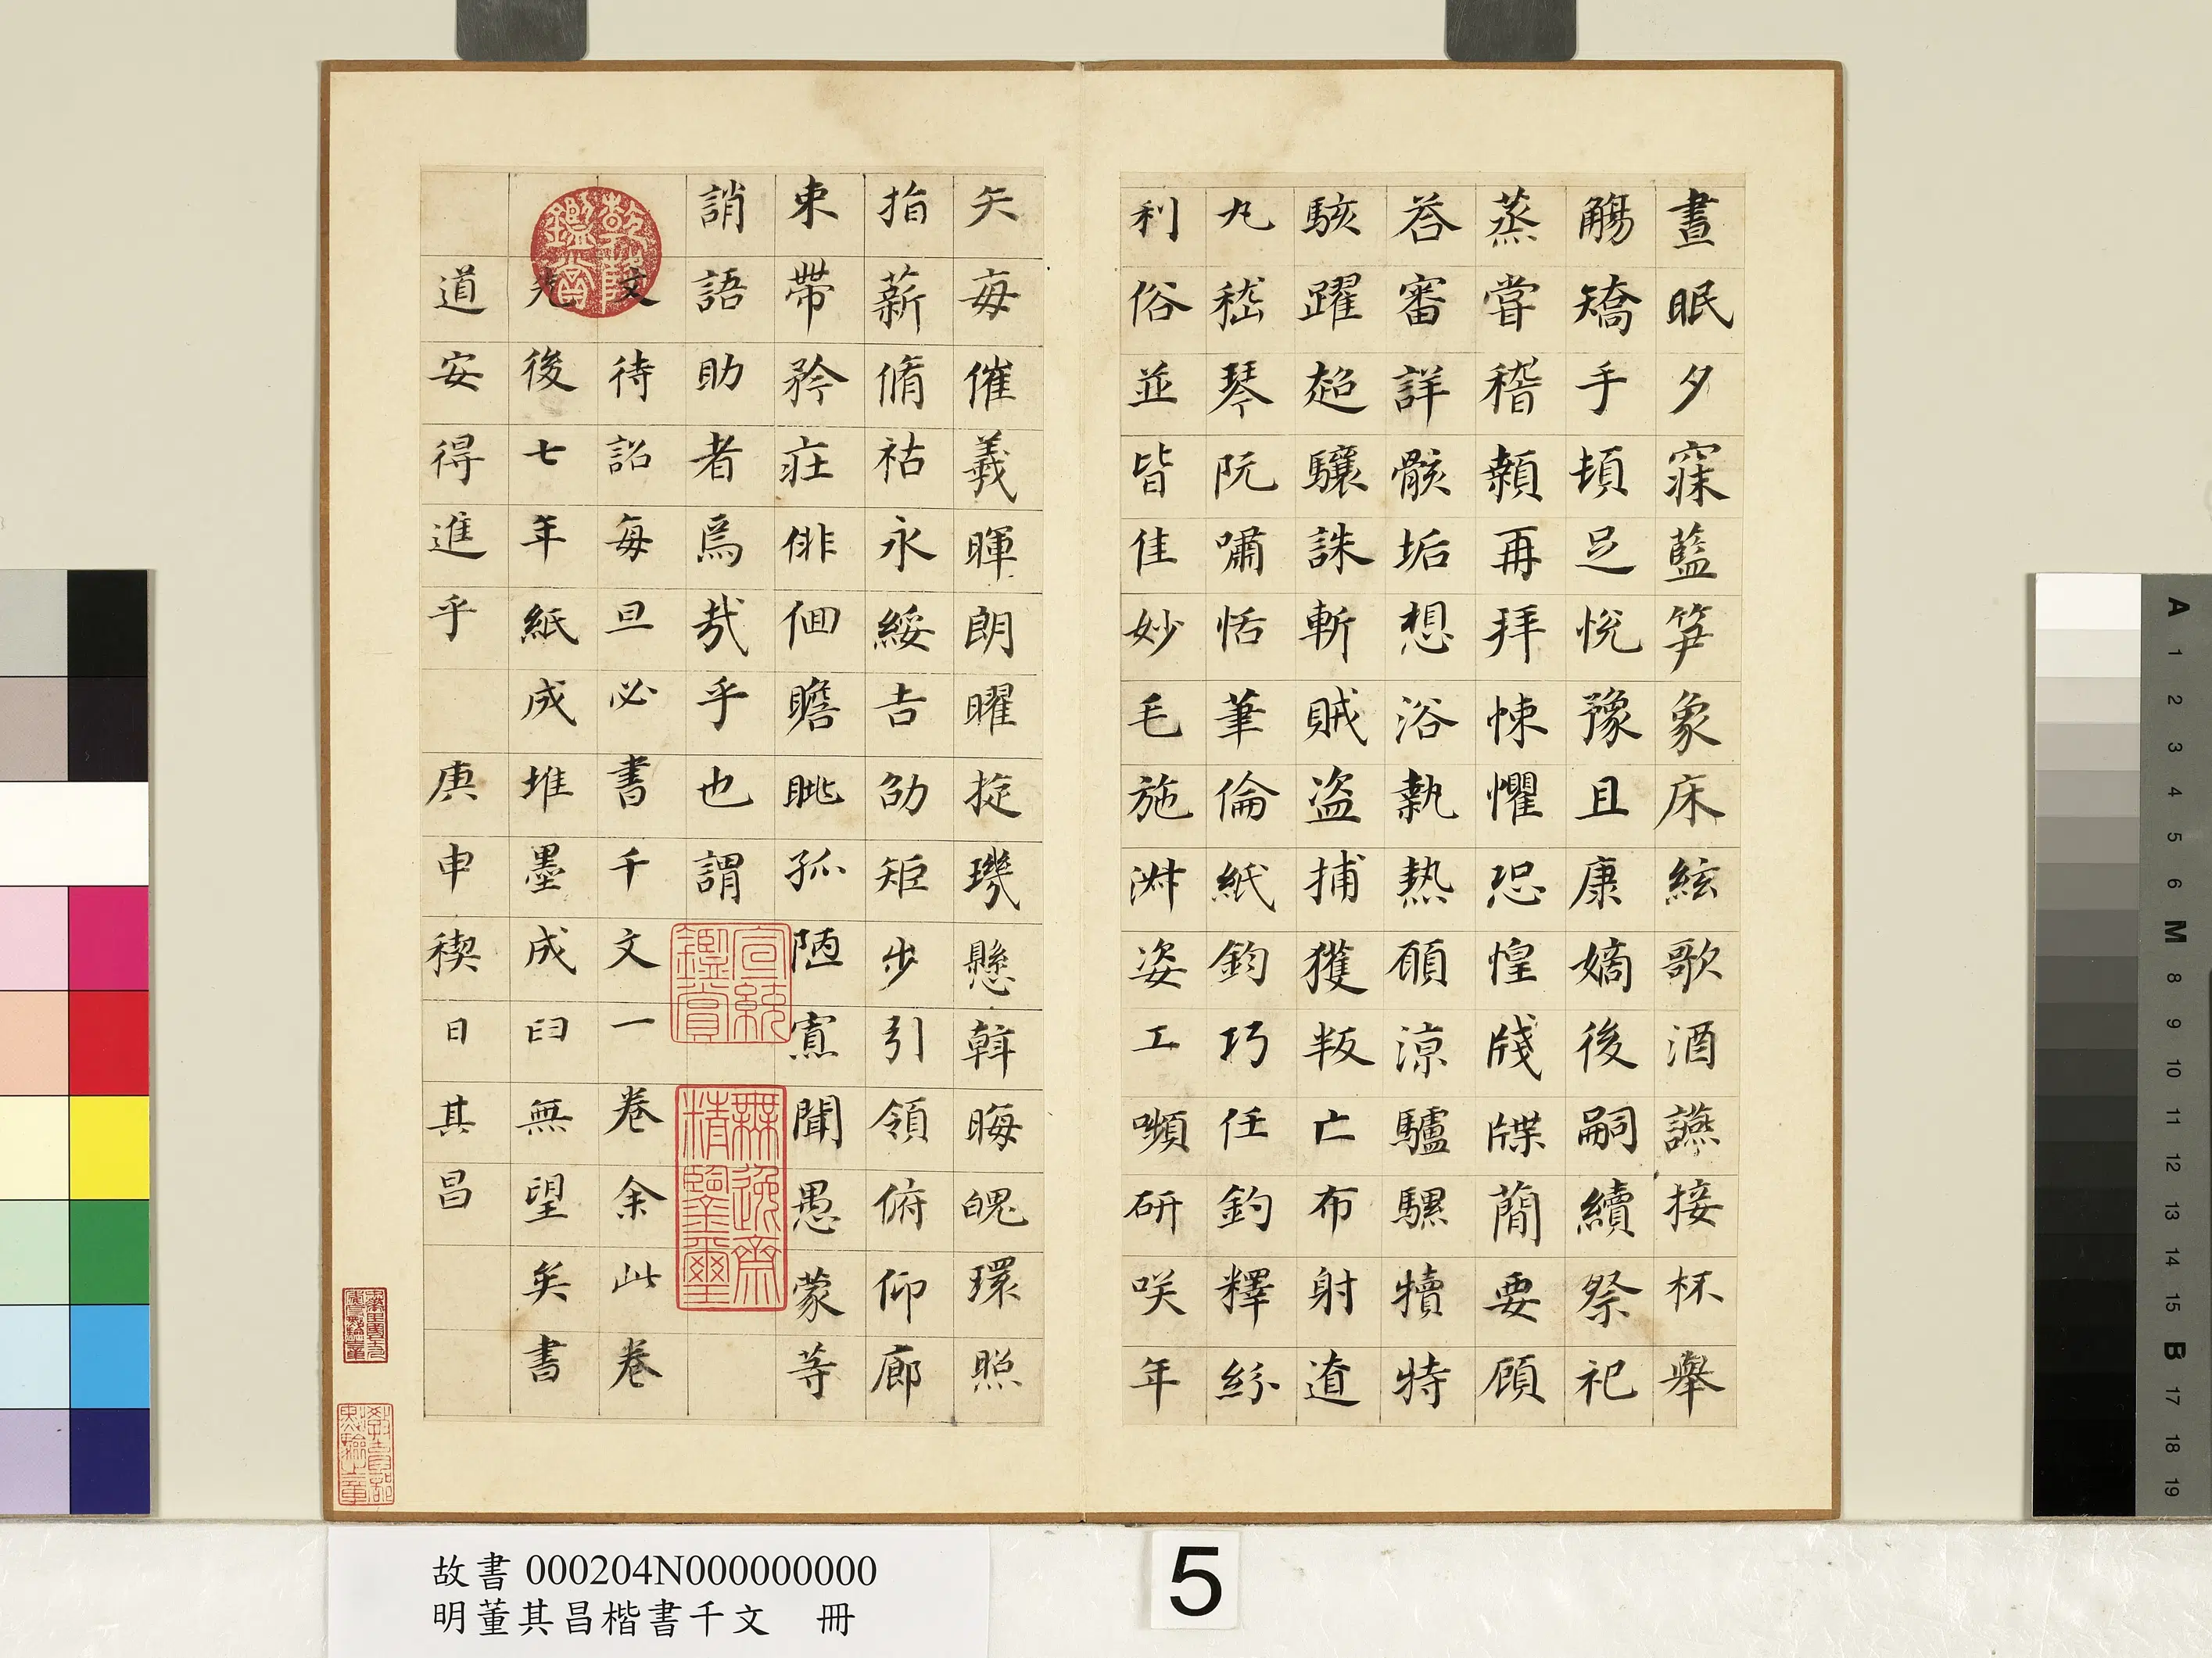 晝眠夕寐藍笋象床絃歌酒讌接杯舉
觴矯手頓足悅豫且康嫡後嗣續祭祀
蒸嘗稽顙再拜悚懼恐惶牋牒簡要顧
荅審詳骸垢想浴執熱願涼驢騾犢特
駭躍超驤誅斬賊盜捕獲叛亡布射遼
丸嵇琴阮嘯恬筆倫紙鈞巧任釣釋紛
利俗並皆佳妙毛施淑姿工嚬研咲年
矢每催羲暉朗曜旋璣懸斡晦魄環照
指薪脩祜永綏吉劭矩步引領俯仰廊
束帶矜莊俳佪瞻眺孤陋寡聞愚蒙等
誚語助者焉哉乎也謂
文待詔每旦必書千文一卷余此卷
先後七年紙成堆墨成臼無望矣書
道安得進乎 庚申禊日其昌
乾隆鑑賞
宣統鑑賞
無逸齋精鑒璽
故書000204N000000000
明董其昌楷書千文 冊
5
A 1 2 3 4 5 6 M 8 9 10 11 12 13 14 15 B 17 18 19